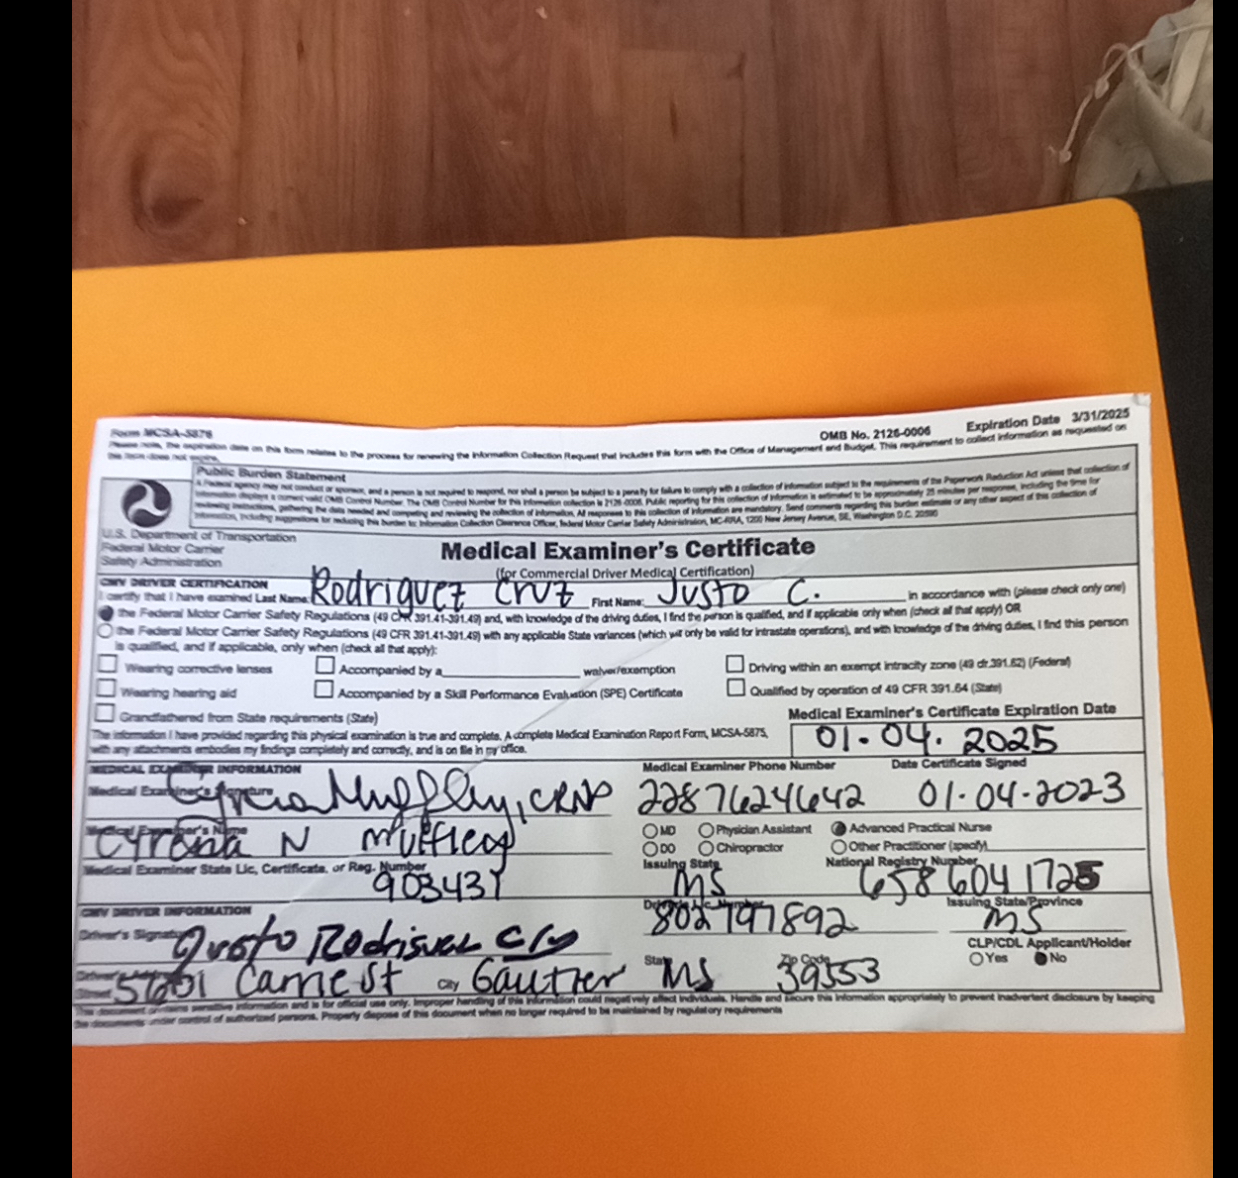 Form MCSA-5876 OMB No. 2126-0006 Expiration Date 3/31/2025
Please note, the expiration date on this form relates to the process for renewing the Information Collection Request that includes this form with the Office of Management and Budget. This requirement to collect information as requested on
this form does not expire.
Public Burden Statement
A Federal agency may not conduct or sponsor, and a person is not required to respond, nor shall a person be subject to a penalty for failure to comply with a collection of information subject to the requirements of the Paperwork Reduction Act unless that collection of
information displays a current valid OMB Control Number. The OMB Control Number for this information collection is 2126-0006. Public reporting for this collection of information is estimated to be approximately 25 minutes per response, including the time for
reviewing instructions, gathering the data needed and completing and reviewing the collection of information. All responses to this collection of information are mandatory. Send comments regarding this burden estimate or any other aspect of this collection of
information, including suggestions for reducing this burden to: Information Collection Clearance Officer, Federal Motor Carrier Safety Administration, MC-RRA, 1200 New Jersey Avenue, SE, Washington D.C. 20590
U.S. Department of Transportation
Federal Motor Carrier
Safety Administration
Medical Examiner's Certificate
(for Commercial Driver Medical Certification)
CMV DRIVER CERTIFICATION
I certify that I have examined Last Name: Rodriguez Cruz First Name: Justo C. in accordance with (please check only one)
the Federal Motor Carrier Safety Regulations (49 CFR 391.41-391.49) and, with knowledge of the driving duties, I find the person is qualified, and if applicable only when (check all that apply) OR
the Federal Motor Carrier Safety Regulations (49 CFR 391.41-391.49) with any applicable State variances (which will only be valid for intrastate operations), and with knowledge of the driving duties, I find this person
is qualified, and if applicable, only when (check all that apply):
Wearing corrective lenses Accompanied by a waiver/exemption Driving within an exempt intracity zone (49 cfr.391.62) (Federal)
Wearing hearing aid Accompanied by a Skill Performance Evaluation (SPE) Certificate Qualified by operation of 49 CFR 391.64 (State)
Grandfathered from State requirements (State)
Medical Examiner's Certificate Expiration Date
The information I have provided regarding this physical examination is true and complete. A complete Medical Examination Report Form, MCSA-5875,
with any attachments embodies my findings completely and correctly, and is on file in my office.
01.04.2025
MEDICAL EXAMINER INFORMATION Medical Examiner Phone Number Date Certificate Signed
Medical Examiner's Signature , CRNP 2287624642 01.04.2023
Medical Examiner's Name N
MD Physician Assistant Advanced Practical Nurse
DO Chiropractor Other Practitioner (specify)
Medical Examiner State Lic, Certificate, or Reg. Number 903437 Issuing State MS National Registry Number 6586041725
CMV DRIVER INFORMATION
Driver's Signature Justo Rodriguez 802797892 Issuing State/Province MS
CLP/CDL Applicant/Holder
Yes No
Driver's Address
Street City Gautier State MS Zip Code 39553
This document contains sensitive information and is for official use only. Improper handling of this information could negatively affect individuals. Handle and secure this information appropriately to prevent inadvertent disclosure by keeping
the documents under control of authorized persons. Properly dispose of this document when no longer required to be maintained by regulatory requirements